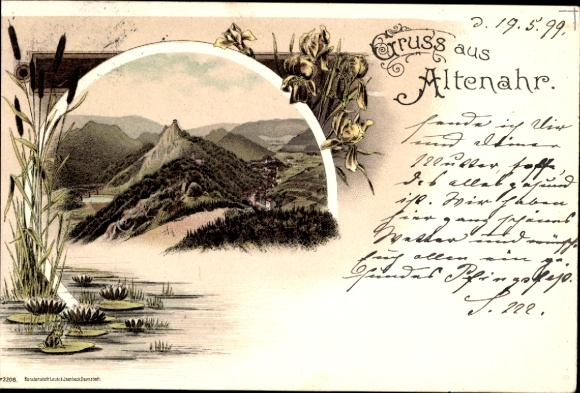 d. 19.5.99.
Gruss aus
Altenahr.
sende ich Dir
und Deiner
Mutter, hoffe
das alles gesund
ist. Wir haben
hier ganz schönes
Wetter und
Euch allen ein ge-
sundes Pfingstfest.
S. M.
2206